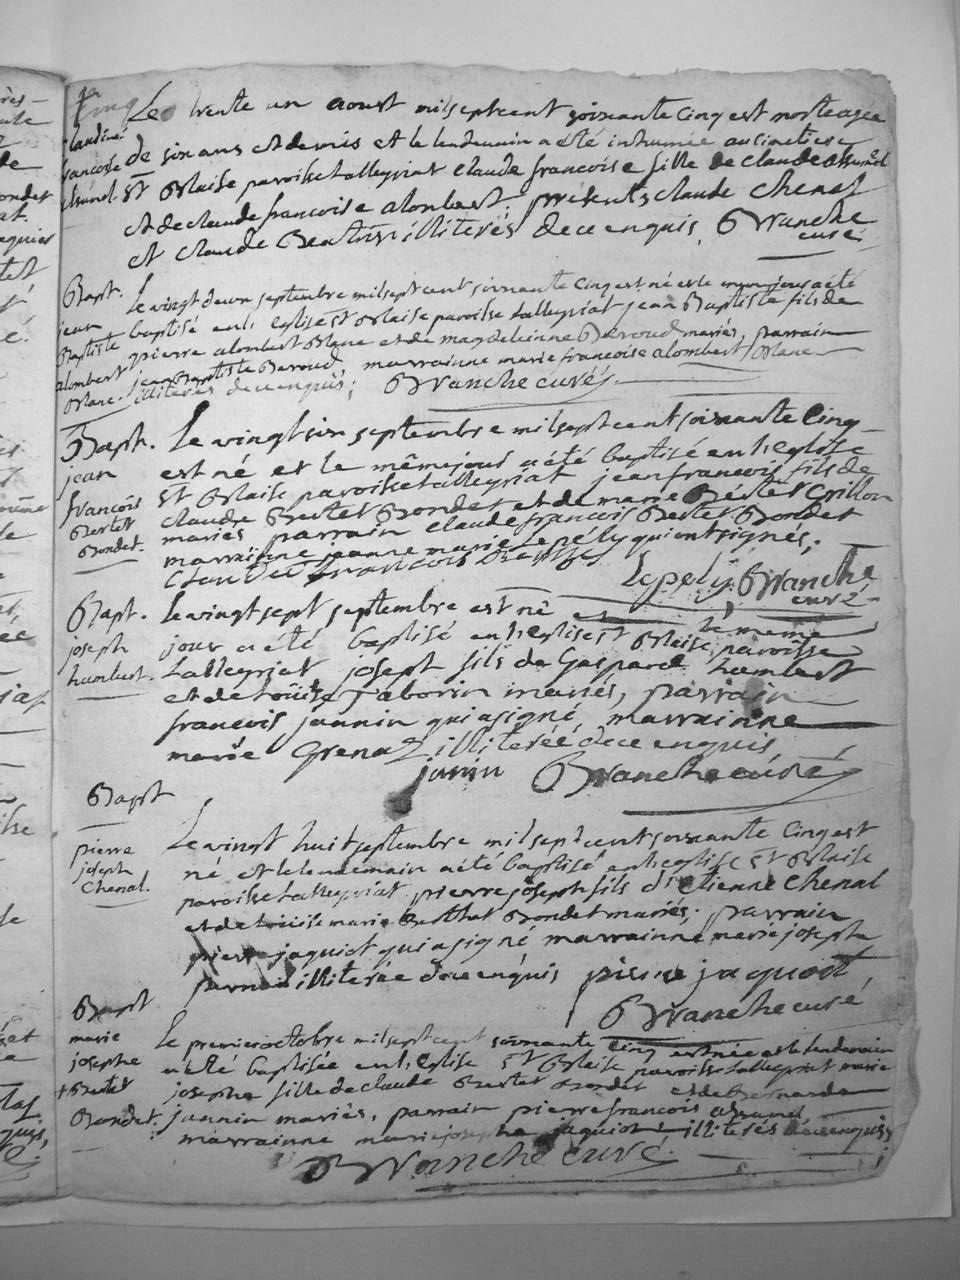 Le trente un aoust mil sept cent soixante cinq est morte agée
claudine de six ans et demis et le lendemain a été inhumée au cimetiere
francoise St Blaise paroisse talleyriat claude francoise fille de claude
et de claude francoise alombert presents claude Chenal
et claude illiterés de ce enquis, Branche
curé
Bapt.
jean
Baptiste
alombert
Blanc.
Le vingt deux septembre mil sept cent soixante cinq est né et le meme jour a été
baptisé en l'eglise St Blaise paroisse talleyriat jean Baptiste fils de
pierre alombert Blanc et de magdeleinne Beroud mariés, parrain
jean Baptiste Beroud marrainne marie francoise alombert Blanc
illiterés de ce enquis; Branche curé
Bapt.
jean
francois
Bertet
Bondet.
Le vingt six septembre mil sept cent soixante cinq
est né et le même jour a été baptisé en l'eglise
St Blaise paroisse talleyriat jean francois fils de
claude Bertet Bondet et de marie Bertet Grillon
mariés parrain claude francois Bertet Bondet
marrainne jeanne marie Lepely qui ont signés,
Claude francois
Lepely Branche
curé
Bapt.
joseph
humbert.
Le vingt sept septembre est né et le meme
jour a été baptisé en l'eglise St Blaise paroisse
talleyriat joseph fils de Gaspard humbert
et de Louise Taborin mariés, parrain
francois jannin qui a signé, marrainne
marie Grenat illiterée de ce enquis
janin Branche curé
Bapt
pierre
joseph
Chenal.
Le vingt huit septembre mil sept cent soixante cinq est
né et le lendemain a été baptisé en l'eglise St Blaise
paroisse talleyriat pierre joseph fils d'Etienne Chenal
et de Louise marie Berthet Bondet mariés. parrain
pierre jaquiot qui a signé marrainne marie josephe
illiterée de ce enquis pierre jaquiot
Branche curé
Bapt
marie
josephe
† Bertet
Bondet.
Le premier octobre mil sept cent soixante cinq est née et le lendemain
a été baptisée en l'eglise St Blaise paroisse talleyriat marie
josephe fille de claude Bertet Bondet et de Bernarde
jannin mariés, parrain pierre francois
marrainne marie josephe jaquiot illiterés de ce enquis
Branche curé.